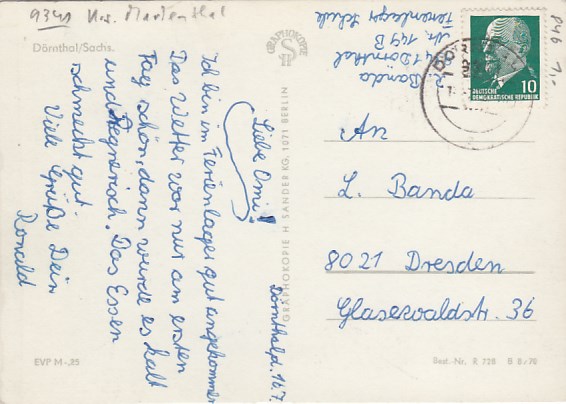 9341 Krs. Marienthal
Dörnthal/Sachs.
Dörnthal, d. 16.7.
Liebe Omi!
Ich bin im Ferienlager gut angekommen
Das Wetter war nur am ersten
Tag schön, dann wurde es kalt
und regnerisch. Das Essen
schmeckt gut.
Viele Grüße Dein
Ronald
EVP M -,25
GRAPHOKOPIE
GRAPHOKOPIE H. SANDER KG, 1071 BERLIN
R. Banda
Dörnthal
Nr. 149 B
Ferienlager Schule
DEUTSCHE
DEMOKRATISCHE REPUBLIK
10
An
L. Banda
8021 Dresden
Glasewaldstr. 36
Best.-Nr. R 728 B 8/70